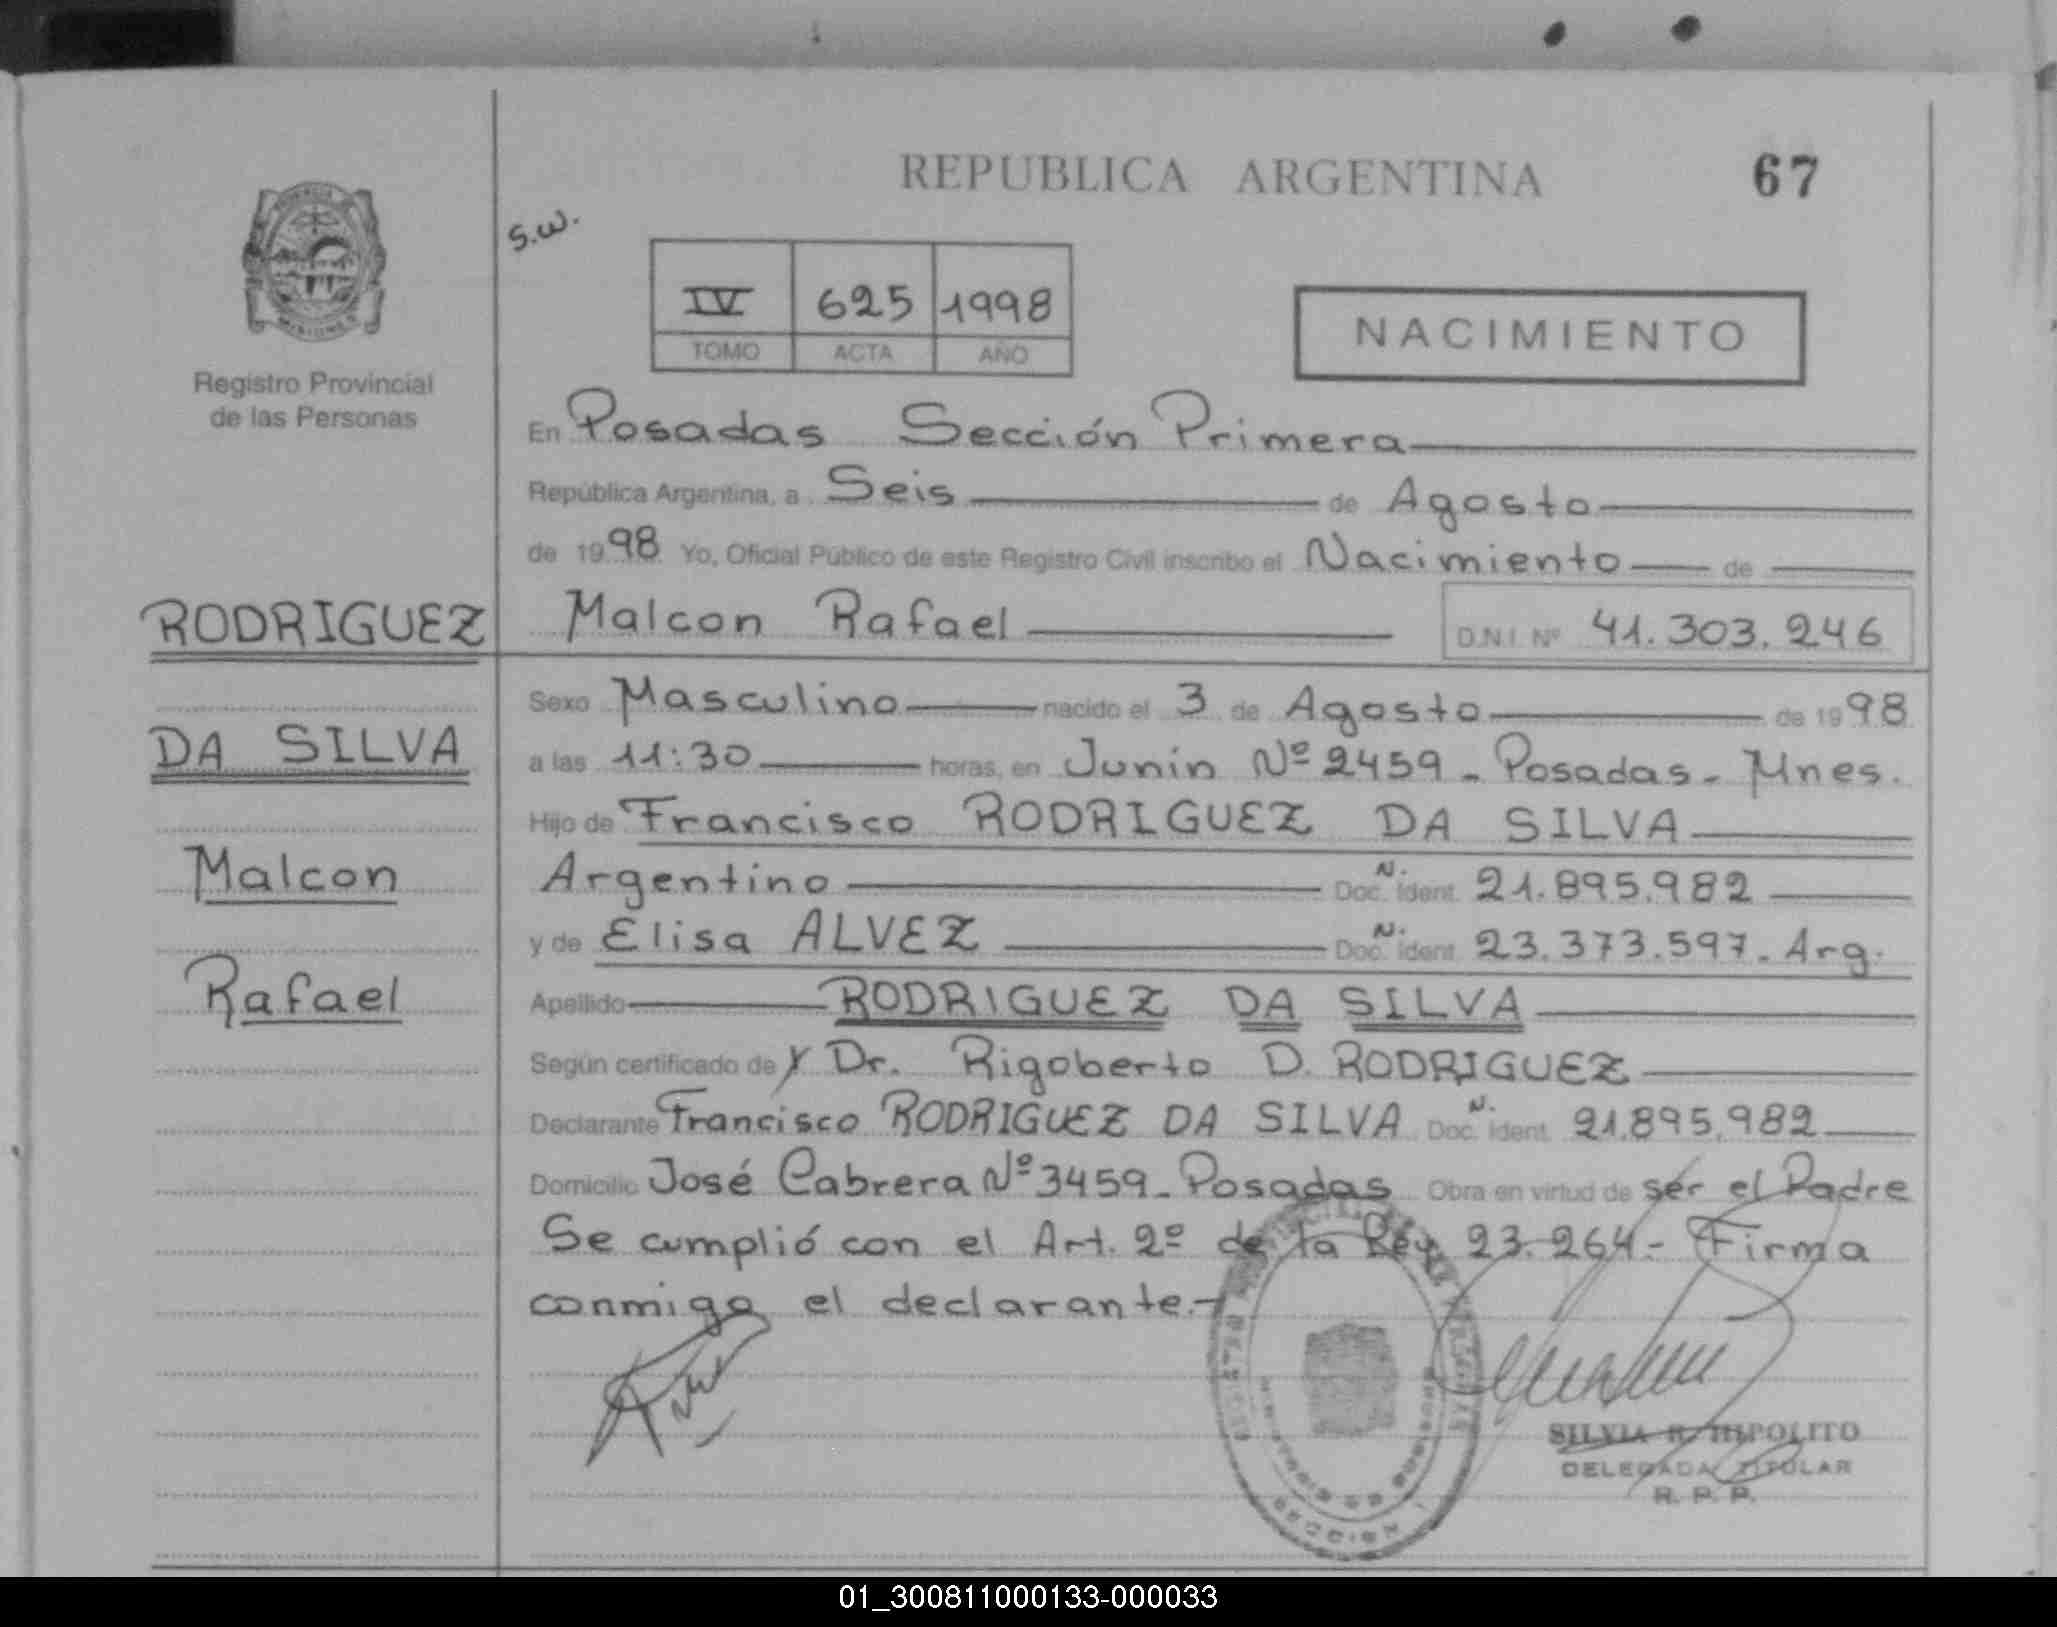 REPUBLICA ARGENTINA
67
S.W.
IV 625 1998
TOMO ACTA AÑO
NACIMIENTO
MISIONES
Registro Provincial
de las Personas
En Posadas Sección Primera
República Argentina, a Seis de Agosto
de 1998 Yo, Oficial Público de este Registro Civil inscribo el Nacimiento de
RODRIGUEZ
Malcon Rafael D.N.I. Nº 41.303.246
Sexo Masculino nacido el 3 de Agosto de 1998
DA SILVA
a las 11:30 horas, en Junin Nº 2459 - Posadas - Mnes.
Hijo de Francisco RODRIGUEZ DA SILVA
Malcon
Argentino Doc. N. Ident. 21.895.982
y de Elisa ALVEZ Doc. N. Ident. 23.373.597 - Arg.
Rafael
Apellido RODRIGUEZ DA SILVA
Según certificado de Dr. Rigoberto D. RODRIGUEZ
Declarante Francisco RODRIGUEZ DA SILVA Doc. N. Ident. 21.895.982
Domicilio José Cabrera Nº 3459 - Posadas Obra en virtud de ser el Padre
Se cumplió con el Art. 2º de la Ley 23.264 - Firma
conmigo el declarante.-
SILVIA R. HIPOLITO
DELEGADA TITULAR
R. P. P.
SECCION
01_300811000133-000033